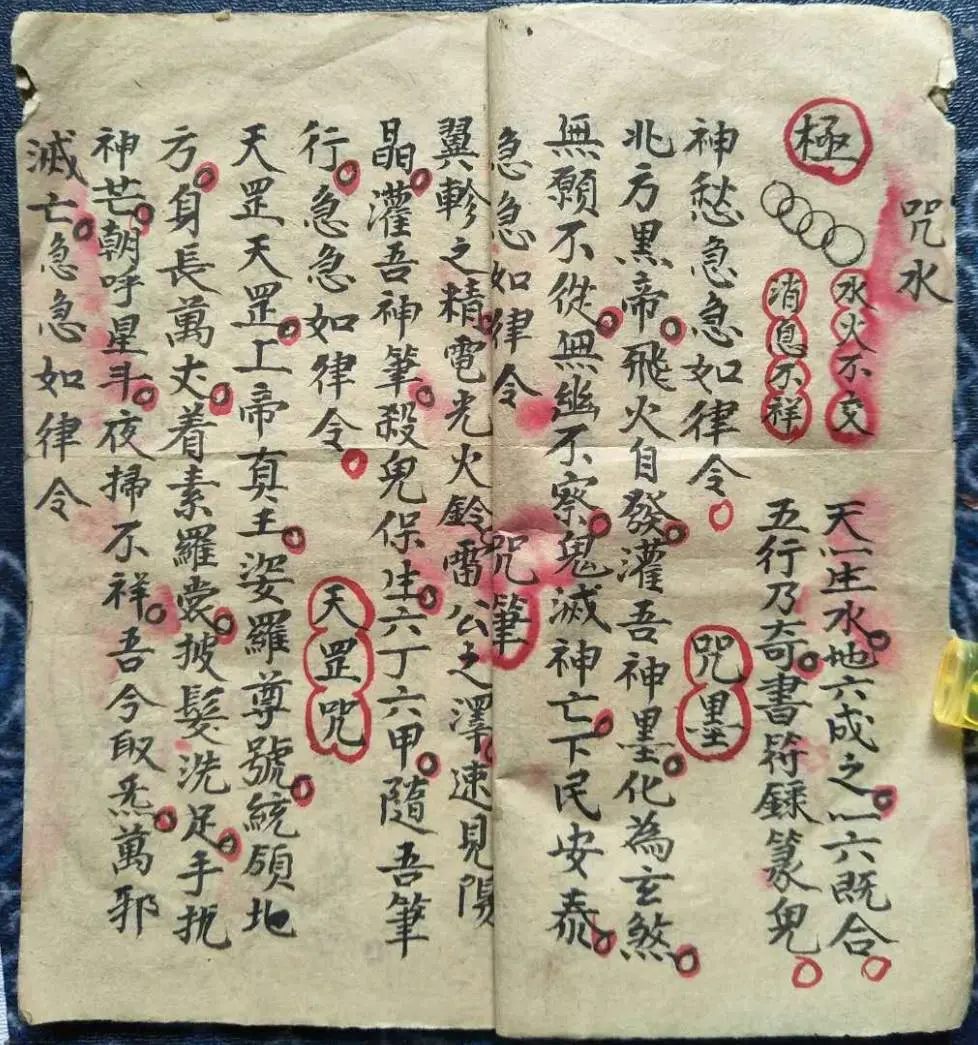 咒水
水火不交
消息不祥
極
天一生水地六成之一六既合
五行乃奇書符籙篆鬼
神愁急急如律令
咒墨
北方黑帝飛火自發灌吾神墨化為玄煞
無願不從無幽不察鬼滅神亡下民安泰
急急如律令
咒筆
翼軫之精電光火鈴雷公之澤速見陽
晶灌吾神筆殺鬼保生六丁六甲隨吾筆
行急急如律令
天罡咒
天罡天罡上帝真主姿羅尊號統領地
方身長萬丈着素羅裳披髮洗足手執
神芒朝呼星斗夜掃不祥吾今取炁萬邪
滅亡急急如律令